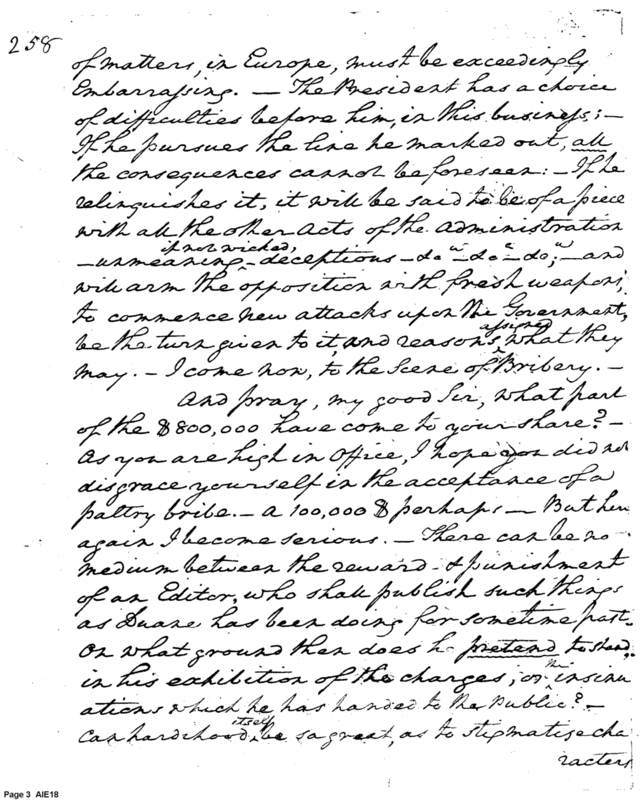 258
of matters, in Europe, must be exceedingly
Embarrassing. — The President has a choice
of difficulties before him, in this business; —
If he pursues the line he marked out, all
the consequences cannot be foreseen: — If he
relinquishes it, it will be said to be of a piece
with all the other acts of the Administration
if not wicked,
— unmeaning ^ deceptions — do" — do" — do"; — and
will arm the opposition with fresh weapons,
to commence new attacks upon the Government,
assigned
be the turn given to it, and reasons ^ what they
may. — I come now, to the Scene of Bribery. —
And pray, my good Sir, what part
of the $800,000 have come to your share? —
As you are high in Office, I hope you did not
disgrace yourself in the acceptance of a
paltry bribe. — a 100,000 $ perhaps — But here
again I become serious. — There can be no
medium between the reward & punishment
of an Editor, who shall publish such things
as Duane has been doing for sometime past.
On what ground then does he pretend to stand
in his exhibition of the charges, or the insinu
ations which he has handed to the Public? —
itself
Can hardihood ^ be so great, as to stigmatise cha
racters
Page 3 AIE18